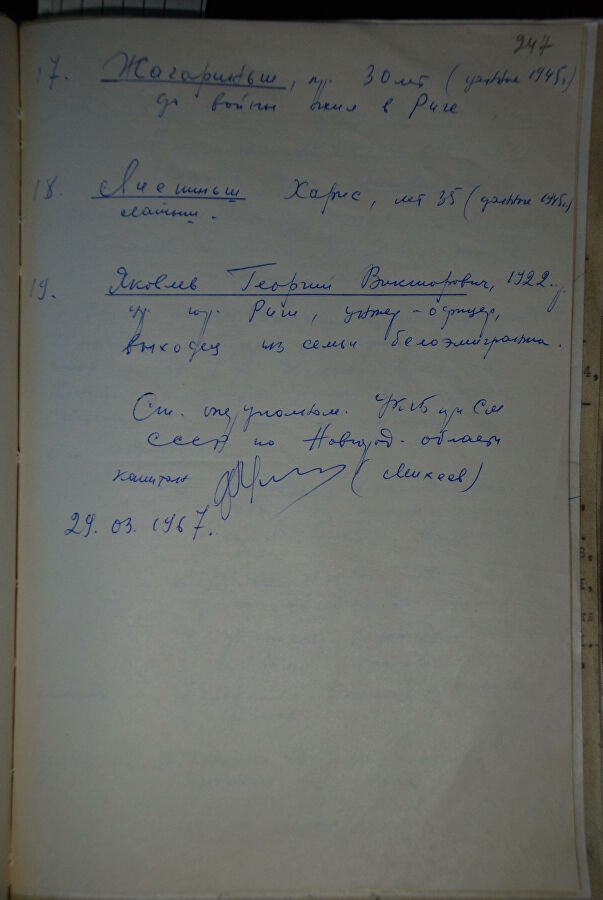 247
17. Жагариньш, 30 лет (данные 1945г)
до войны жил в Риге
18. Лиетиньш Харис, лет 35 (данные 1945г)
латыш.
19. Яковлев Георгий Викторович, 1922
ур. гор. Риги, унтер-офицер,
выходец из семьи белоэмигранта.
Ст. оперуполном. УКГБ при СМ
СССР по Новгород. области
капитан (Михеев)
29.03.1967.